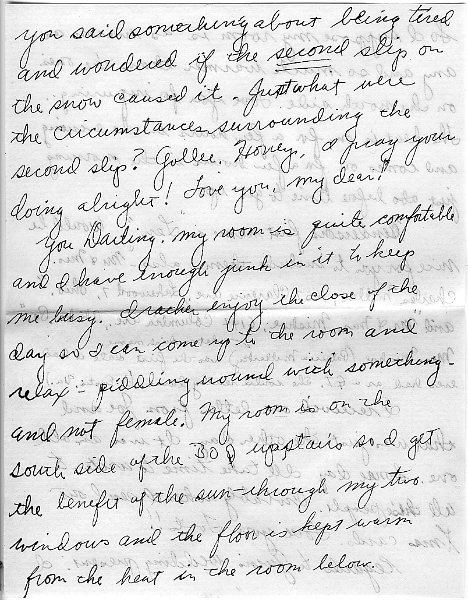 you said something about being tired
and wondered if the second slip on
the snow caused it. Just what were
the circumstances surrounding the
second slip? Gollee, Honey, I pray your
doing alright! Love you, my dear!
You Darling. my room is quite comfortable
and I have enough junk in it to keep
me busy. I rather enjoy the close of the
day so I can come up to the room and
relax - piddling around with something -
and not female. My room is on the
south side of the BOQ upstairs so I get
the benefit of the sun through my two
windows and the floor is kept warm
from the heat in the room below.